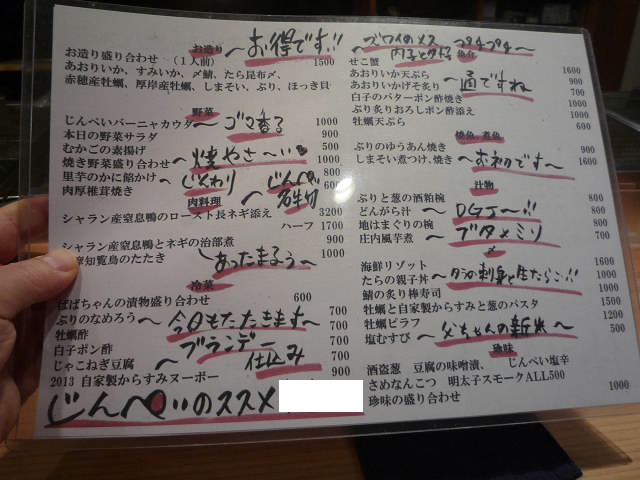 お造り 〜お得です!!
お造り盛り合わせ (1人前) 1500
あおりいか、すみいか、〆鯖、たら昆布〆、
赤穂産牡蠣、厚岸産牡蠣、しまそい、ぶり、ほっき貝
野菜
じんぺいバーニャカウダ〜ゴマ香る 1000
本日の野菜サラダ 900
むかごの素揚げ 500
焼き野菜盛り合わせ〜焼やさ〜い 1000
里芋のかに餡かけ〜じんわり 800
肉厚椎茸焼き 〜じんぺい名物 600
肉料理
シャラン産窒息鴨のロースト長ネギ添え 3200
ハーフ 1700
シャラン産窒息鴨とネギの治部煮 900
知覧鳥のたたき 〜あったまるぅ〜 1000
冷菜
ばばちゃんの漬物盛り合わせ 600
ぶりのなめろう〜今日もたたきます〜 700
牡蠣酢 700
白子ポン酢 〜ブランデー仕込み 700
じゃこねぎ豆腐 700
2013 自家製からすみヌーボー 900
じんぺいのススメ
ズワイのメス 内子と外子 プチプチ〜
魚介
せこ蟹 1600
あおりいか天ぷら 900
あおりいかげそ炙り 〜通ですね 700
白子のバターポン酢焼き 1000
ぶり炙りおろしポン酢添え 1000
牡蠣天ぷら 600
焼魚・煮魚
ぶりのゆうあん焼き 900
しまそい煮つけ、焼き 〜お初です〜 1600
汁物
ぶりと葱の酒粕椀 800
どんがら汁 〜DGJ〜!! 800
地はまぐりの椀 800
庄内風芋煮 〜ブタとミソ 700
〆
海鮮リゾット 1600
たらの親子丼 〜タラの刺身と生たらこ!! 1000
鯖の炙り棒寿司 1000
牡蠣と自家製からすみと葱のパスタ 1500
牡蠣ピラフ 1200
塩むすび 〜父ちゃんの新米〜 500
珍味
酒盗葱 豆腐の味噌漬、 じんぺい塩辛
さめなんこつ 明太子スモークALL500
珍味の盛り合わせ 1000